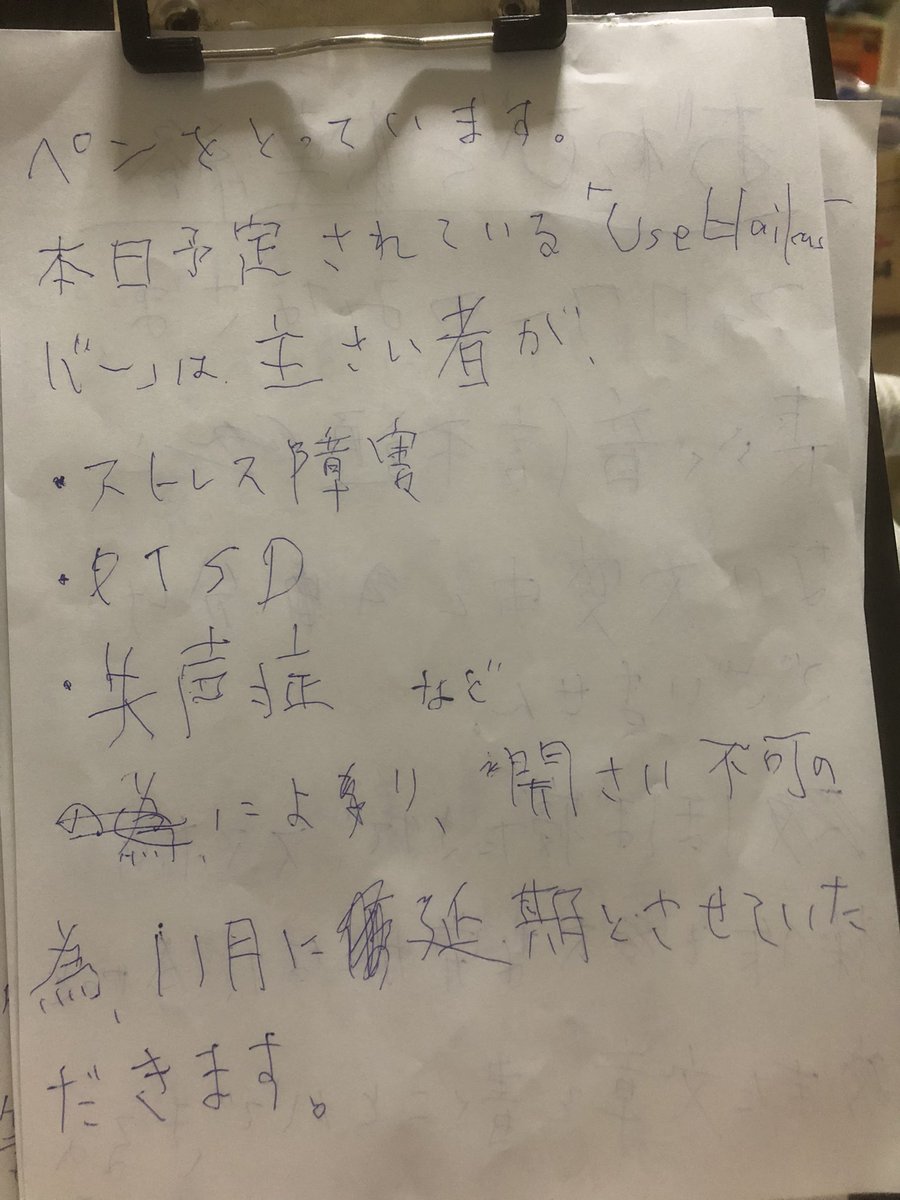 ペンをとっています。
本日予定されている「Use
バー」は、主さい者が、
・ストレス障害
・PTSD
・失声症 など
により、開さい不可の
為、11月に延期とさせていた
だきます。